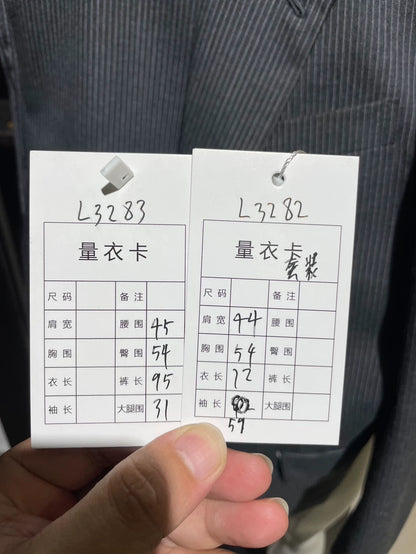 L3283
量衣卡
尺码 备注
肩宽 腰围 45
胸围 臀围 54
衣长 裤长 95
袖长 大腿围 31
L3282
量衣卡
套装
尺码 备注
肩宽 44 腰围
胸围 54 臀围
衣长 72 裤长
袖长 大腿围
59